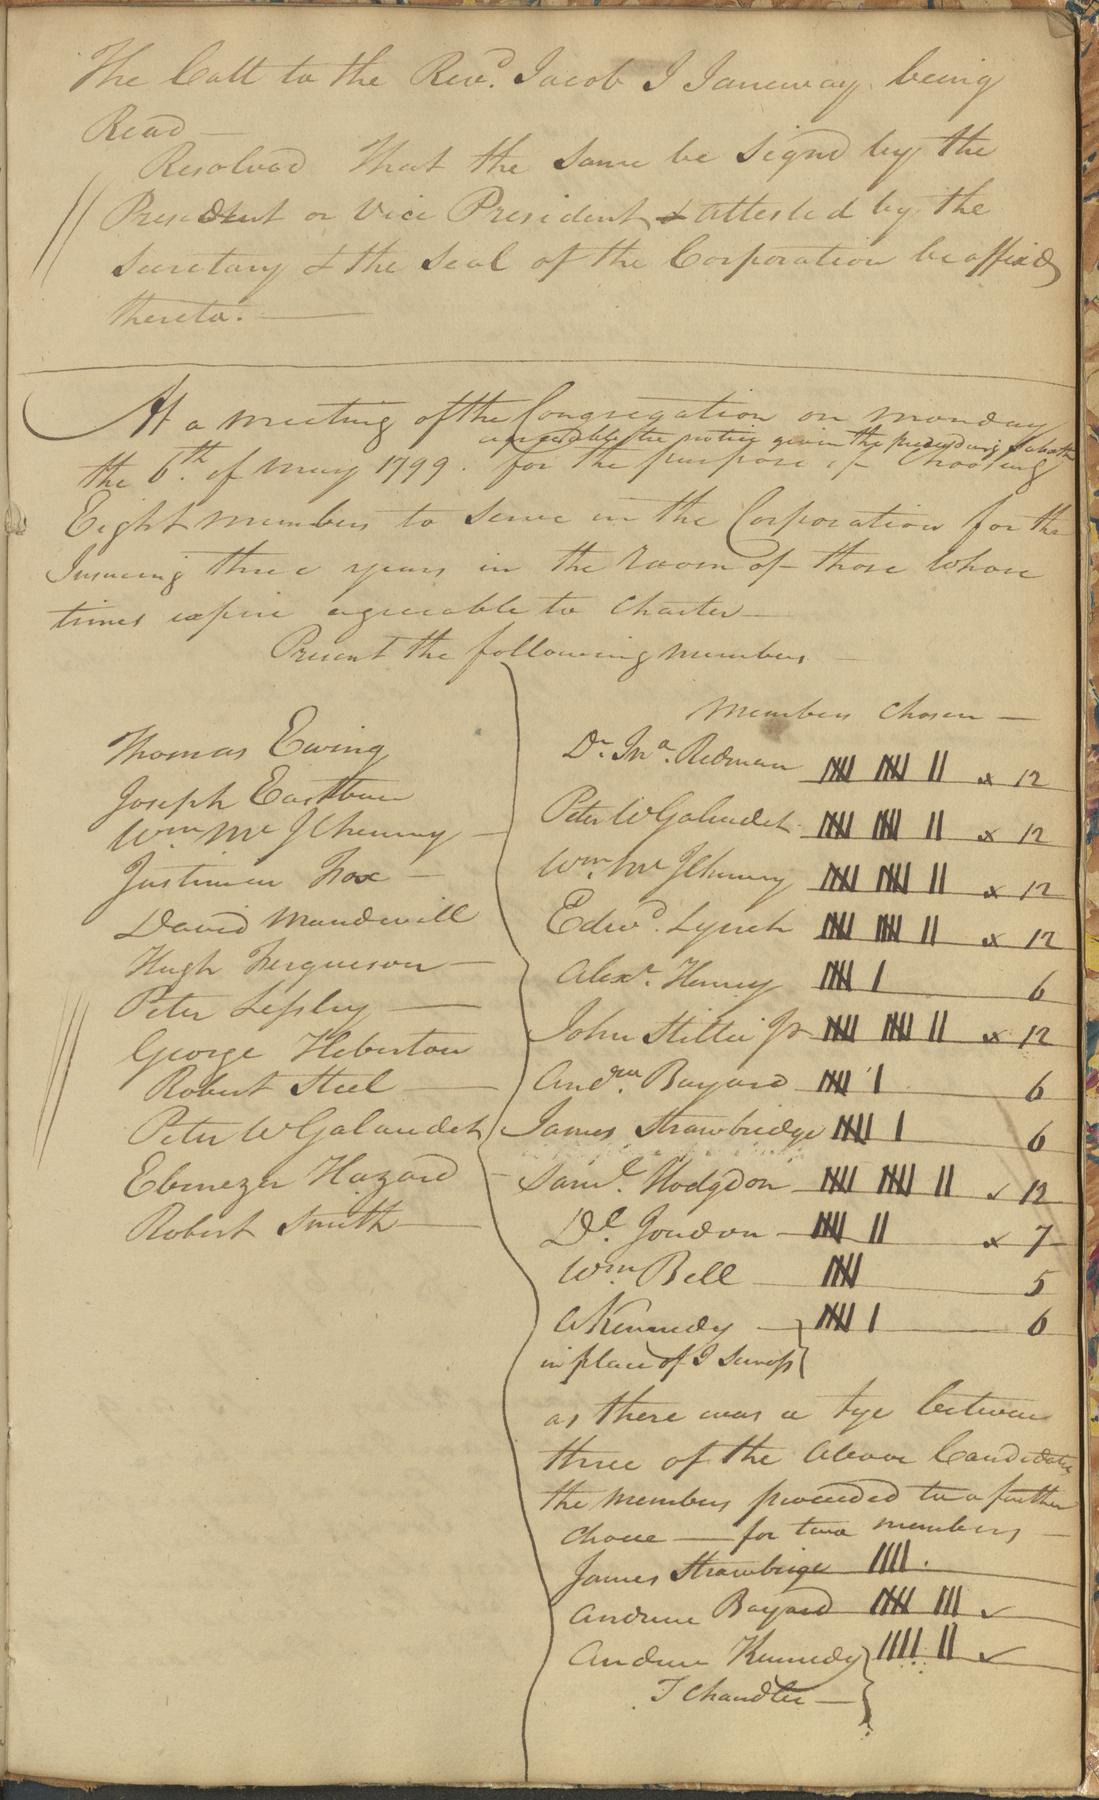 The Call to the Revd. Jacob J Janeway being
Read —
Resolved That the same be signd by the
President or Vice President & attested by the
Secretary & the seal of the Corporation be affixd
thereto. —
At a meeting of the Congregation on monday
agreeable to the notice given the preceeding Sabath
the 6th. of may 1799. for the purpose of Choosing
Eight members to serve in the Corporation for the
Insueing three years in the room of those whose
times expire agreeable to Charter —
Present the following members —
Thomas Ewing
Joseph Eastburn
Wm. Mc Ilhenny —
Justinian Fox —
David Mandevill
Hugh Ferguson —
Peter Lessley —
George Heberton
Robert Steel —
Peter W Galaudet
Ebenezer Hazard —
Robert Smith —
Members Chosen —
Dr. Jno. Redman 𝍸 𝍸 || x 12
Peter W Galaudet 𝍸 𝍸 || x 12
Wm. Mc Ilhenny 𝍸 𝍸 || x 12
Edwd. Lynch 𝍸 𝍸 || x 12
Alexr. Henry 𝍸 | 6
John Stille Jr 𝍸 𝍸 || x 12
Andrw. Bayard 𝍸 | 6
James Strawbridge 𝍸 | 6
Saml. Hodgdon 𝍸 𝍸 || ✓ 12
Dl. Goudon 𝍸 || x 7
Wm. Bell 𝍸 5
A Kennedy — 𝍸 | 6
in place of J
as there was a tye between
three of the above Candidates
the members proceeded to a further
choice — for two members —
James Strawbrige ||||.
Andrew Bayard 𝍸 ||| ✓
Andrew Kennedy |||| || ✓
T Chandler —